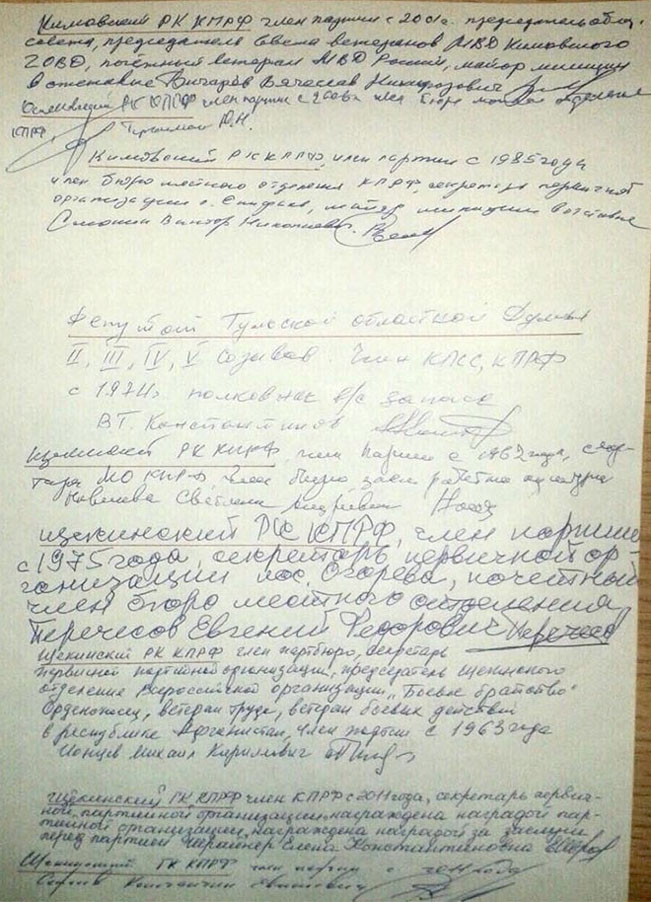 Кимовский РК КПРФ член партии с 2001г. председатель общ.
совета, председатель Совета ветеранов МВД Кимовского
ГОВД, почётный ветеран МВД России, майор милиции
в отставке Вячеслав
РК КПРФ член партии с бюро отделения
КПРФ. Ю.Н.
Кимовский РК КПРФ, член партии с 1985 года
член бюро местного отделения КПРФ, секретарь первичной
организации г. Епифань, майор милиции в отставке
Виктор Николаевич
Депутат Тульской областной Думы
II, III, IV, V созывов. Член КПСС, КПРФ
с 1974г. полковник в/с запаса
ВТ. Константинов
Щекинский РК КПРФ, член партии с 1962 года, секре-
таря МО КПРФ, член бюро, засл. работник культуры
Светлана Андреевна
щекинский РК КПРФ, член партии
с 1975 года, секретарь первичной ор-
ганизации пос. Огарева, почетный
член бюро местного отделения,
Перечесов Евгений Федорович
Щекинский РК КПРФ член партбюро, секретарь
первичной партийной организации, председатель Щекинского
отделение Всероссийской организации „Боевое братство"
Орденоносец, ветеран труда, ветеран боевых действий
в республике Афганистан, член партии с 1963 года
Михаил Каримович
Щекинский ГК КПРФ член КПРФ с 2011 года, секретарь первич-
ной партийной организации, награждена наградой пар-
тийной организации, награждена наградой за заслуги
перед партией Елена Константиновна
Щекинский ГК КПРФ член партии с 2011 года
Константин Иванович